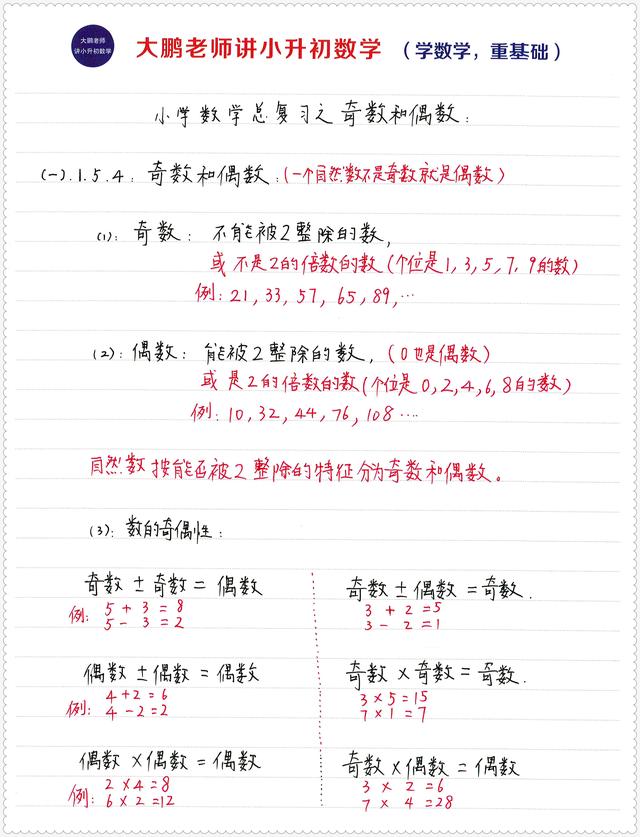 大鹏老师
讲小升初数学
大鹏老师讲小升初数学 （学数学，重基础）
小学数学总复习之奇数和偶数：
(一).1.5.4：奇数和偶数：(一个自然数不是奇数就是偶数)
(1)：奇数：不能被2整除的数，
或不是2的倍数的数(个位是1,3,5,7,9的数)
例：21,33,57,65,89,…
(2)：偶数：能被2整除的数，(0也是偶数)
或是2的倍数的数(个位是0,2,4,6,8的数)
例：10,32,44,76,108…
自然数按能否被2整除的特征分为奇数和偶数。
(3)：数的奇偶性：
奇数±奇数=偶数
例：5+3=8
5-3=2
奇数±偶数=奇数.
3+2=5
3-2=1
偶数±偶数=偶数
例：4+2=6
4-2=2
奇数×奇数=奇数.
3×5=15
7×1=7
偶数×偶数=偶数
例：2×4=8
6×2=12
奇数×偶数=偶数
3×2=6
7×4=28